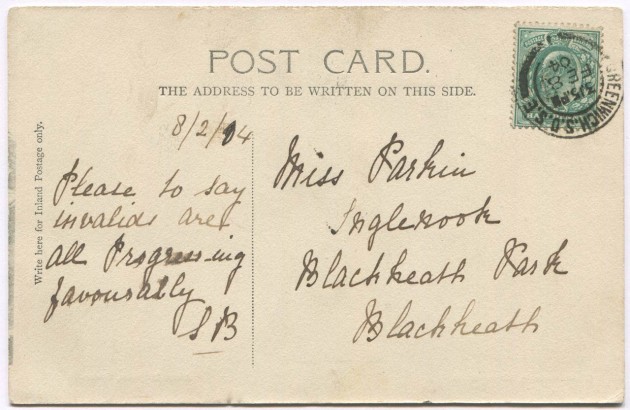 POST CARD.
THE ADDRESS TO BE WRITTEN ON THIS SIDE.
GREENWICH.S.O.S.E
5.15 PM
04
Write here for Inland Postage only.
8/2/04
Please to say
invalids are
all Progressing
favourably
SB
Miss Parkin
Inglenook
Blackheath Park
Blackheath